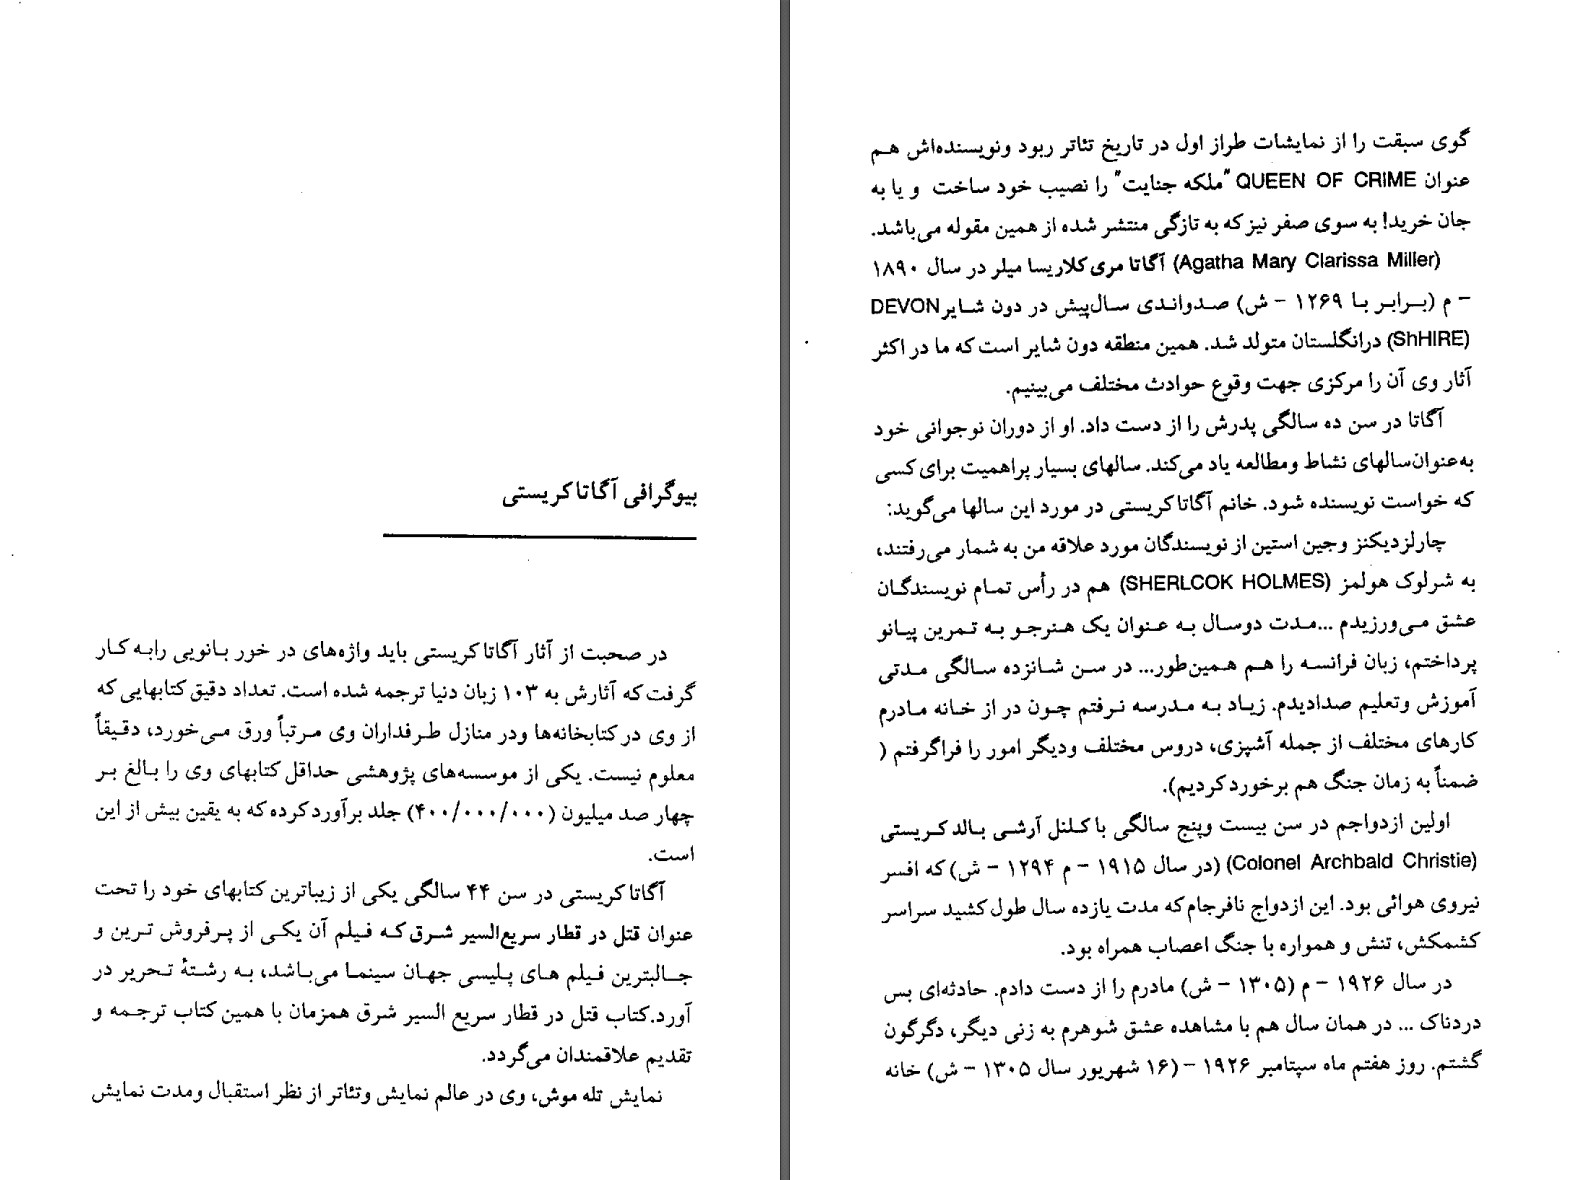 بیوگرافی آگاتا کریستی
در صحبت از آثار آگاتا کریستی باید واژه‌های در خور بانویی رابه کار
گرفت که آثارش به ۱۰۳ زبان دنیا ترجمه شده است. تعداد دقیق کتابهایی که
از وی در کتابخانه‌ها ودر منازل طرفداران وی مرتباً ورق می‌خورد، دقیقاً
معلوم نیست. یکی از موسسه‌های پژوهشی حداقل کتابهای وی را بالغ بر
چهار صد میلیون (۴۰۰/۰۰۰/۰۰۰) جلد برآورد کرده که به یقین بیش از این
است.
آگاتا کریستی در سن ۴۴ سالگی یکی از زیباترین کتابهای خود را تحت
عنوان قتل در قطار سریع‌السیر شرق که فیلم آن یکی از پرفروش ترین و
جالبترین فیلم های پلیسی جهان سینما می‌باشد، به رشتهٔ تحریر در
آورد.کتاب قتل در قطار سریع السیر شرق همزمان با همین کتاب ترجمه و
تقدیم علاقمندان می‌گردد.
نمایش تله موش، وی در عالم نمایش وتئاتر از نظر استقبال ومدت نمایش
گوی سبقت را از نمایشات طراز اول در تاریخ تئاتر ربود ونویسنده‌اش هم
عنوان QUEEN OF CRIME "ملکه جنایت" را نصیب خود ساخت و یا به
جان خرید! به سوی صفر نیز که به تازگی منتشر شده از همین مقوله می‌باشد.
(Agatha Mary Clarissa Miller) آگاتا مری کلاریسا میلر در سال ۱۸۹۰
- م (برابر با ۱۲۶۹ - ش) صدواندی سال‌پیش در دون شایر DEVON
(ShHIRE) درانگلستان متولد شد. همین منطقه دون شایر است که ما در اکثر
آثار وی آن را مرکزی جهت وقوع حوادث مختلف می‌بینیم.
آگاتا در سن ده سالگی پدرش را از دست داد. او از دوران نوجوانی خود
به‌عنوان‌سالهای نشاط ومطالعه یاد می‌کند. سالهای بسیار پراهمیت برای کسی
که خواست نویسنده شود. خانم آگاتا کریستی در مورد این سالها می‌گوید:
چارلزدیکنز وجین استین از نویسندگان مورد علاقه من به شمار می‌رفتند،
به شرلوک هولمز (SHERLCOK HOLMES) هم در رأس تمام نویسندگان
عشق می‌ورزیدم ...مدت دوسال به عنوان یک هنرجو به تمرین پیانو
پرداختم، زبان فرانسه را هم همین‌طور... در سن شانزده سالگی مدتی
آموزش وتعلیم صدادیدم. زیاد به مدرسه نرفتم چون در از خانه مادرم
کارهای مختلف از جمله آشپزی، دروس مختلف ودیگر امور را فراگرفتم (
ضمناً به زمان جنگ هم برخورد کردیم).
اولین ازدواجم در سن بیست وپنج سالگی با کلنل آرشی بالد کریستی
(Colonel Archbald Christie) (در سال ۱۹۱۵ - م ۱۲۹۴ - ش) که افسر
نیروی هوائی بود. این ازدواج نافرجام که مدت یازده سال طول کشید سراسر
کشمکش، تنش و همواره با جنگ اعصاب همراه بود.
در سال ۱۹۲۶ - م (۱۳۰۵ - ش) مادرم را از دست دادم. حادثه‌ای بس
دردناک ... در همان سال هم با مشاهده عشق شوهرم به زنی دیگر، دگرگون
گشتم. روز هفتم ماه سپتامبر ۱۹۲۶ - (۱۶ شهریور سال ۱۳۰۵ - ش) خانه